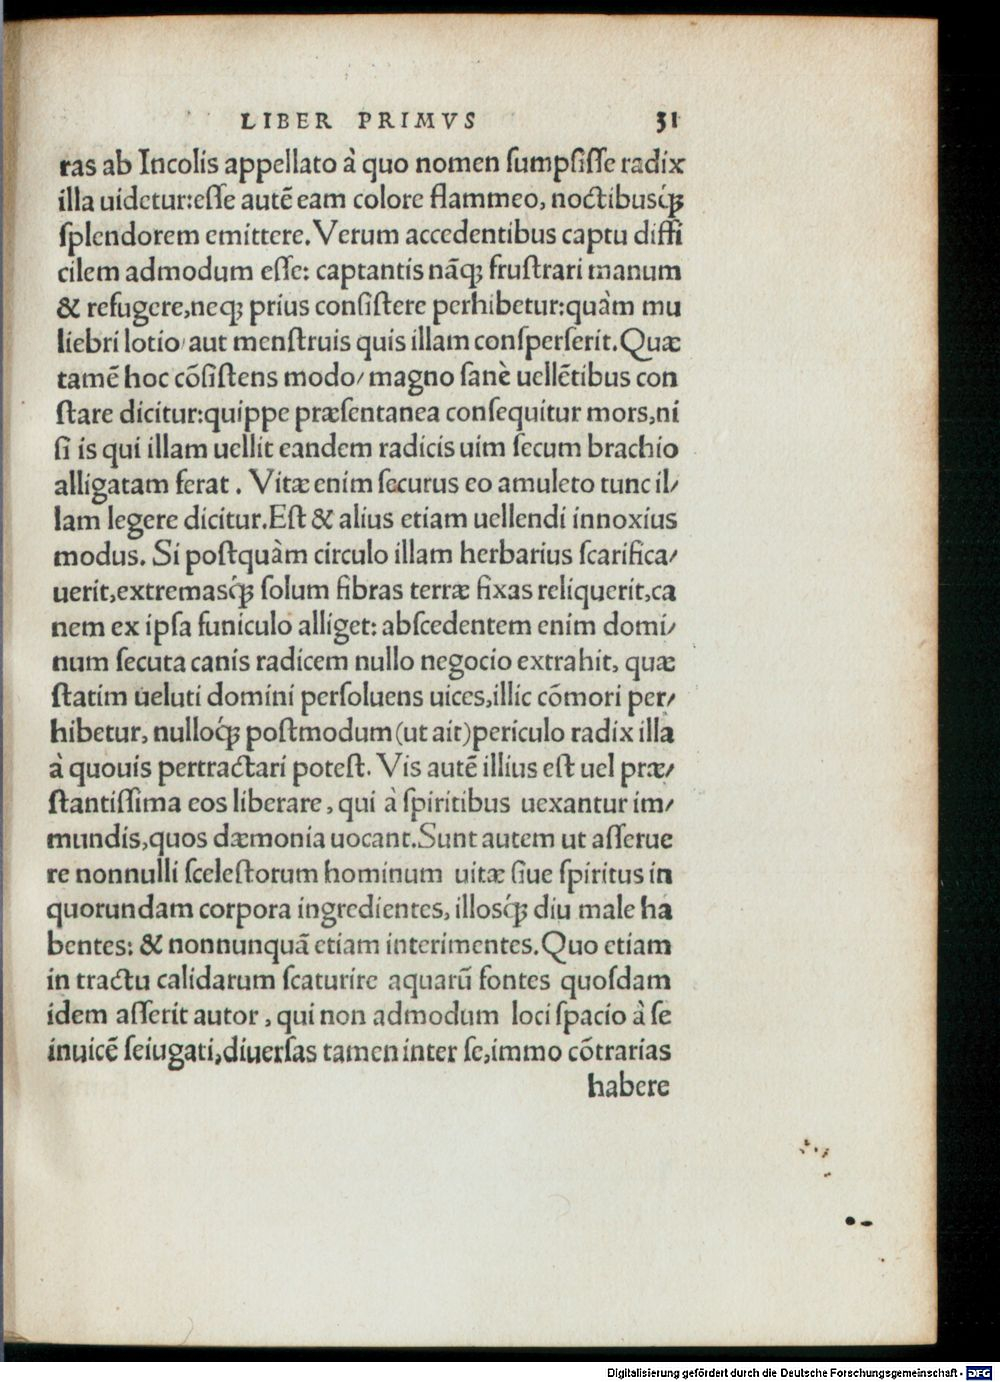 LIBER PRIMVS 31
ras ab Incolis appellato à quo nomen ſumpſiſſe radix
illa uidetur:eſſe autē eam colore flammeo, noctibusq́;
ſplendorem emittere. Verum accedentibus captu diffi
cilem admodum eſſe: captantis nāq; fruſtrari manum
& refugere,neq; prius conſiſtere perhibetur:quàm mu
liebri lotio aut menſtruis quis illam conſperſerit. Quæ
tamē hoc cōſiſtens modo/ magno ſanè uellētibus con
ſtare dicitur:quippe præſentanea conſequitur mors,ni
ſi is qui illam uellit eandem radicis uim ſecum brachio
alligatam ferat . Vitæ enim ſecurus eo amuleto tunc il/
lam legere dicitur. Eſt & alius etiam uellendi innoxius
modus. Si poſtquàm circulo illam herbarius ſcarifica/
uerit,extremasq́; ſolum fibras terræ fixas reliquerit,ca
nem ex ipſa funiculo alliget: abſcedentem enim domi/
num ſecuta canis radicem nullo negocio extrahit, quæ
ſtatim ueluti domini perſoluens uices,illic cōmori per/
hibetur, nulloq́; poſtmodum (ut ait) periculo radix illa
à quouis pertractari poteſt. Vis autē illius eſt uel præ/
ſtantiſſima eos liberare, qui à ſpiritibus uexantur im/
mundis,quos dæmonia uocant. Sunt autem ut aſſerue
re nonnulli ſceleſtorum hominum uitæ ſiue ſpiritus in
quorundam corpora ingredientes, illosq́; diu male ha
bentes: & nonnunquā etiam interimentes. Quo etiam
in tractu calidarum ſcaturire aquarū fontes quoſdam
idem aſſerit autor, qui non admodum loci ſpacio à ſe
inuicē ſeiugati,diuerſas tamen inter ſe,immo cōtrarias
habere
Digitalisierung gefördert durch die Deutsche Forschungsgemeinschaft - DFG